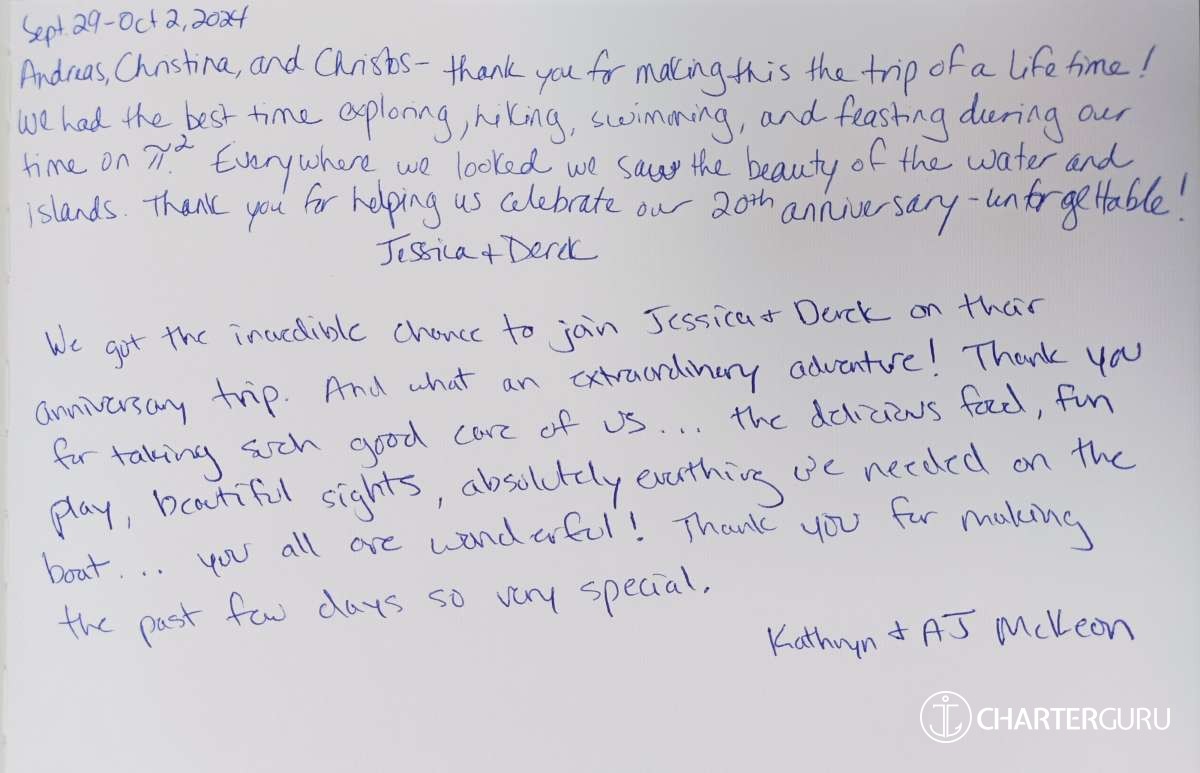 Sept. 29-Oct 2, 2024
Andreas, Christina, and Christos- thank you for making this the trip of a life time!
We had the best time exploring, hiking, swimming, and feasting during our
time on π². Everywhere we looked we saw the beauty of the water and
islands. Thank you for helping us celebrate our 20th anniversary - unforgettable!
Jessica + Derek
We got the incredible chance to join Jessica + Derek on their
anniversary trip. And what an extraordinary adventure! Thank you
for taking such good care of us... the delicious food, fun
play, beautiful sights, absolutely everthing we needed on the
boat... you all are wonderful! Thank you for making
the past few days so very special.
Kathryn + AJ McKeon
CHARTERGURU